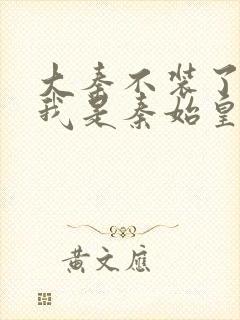 大秦不装了
我是秦始皇
黄文应